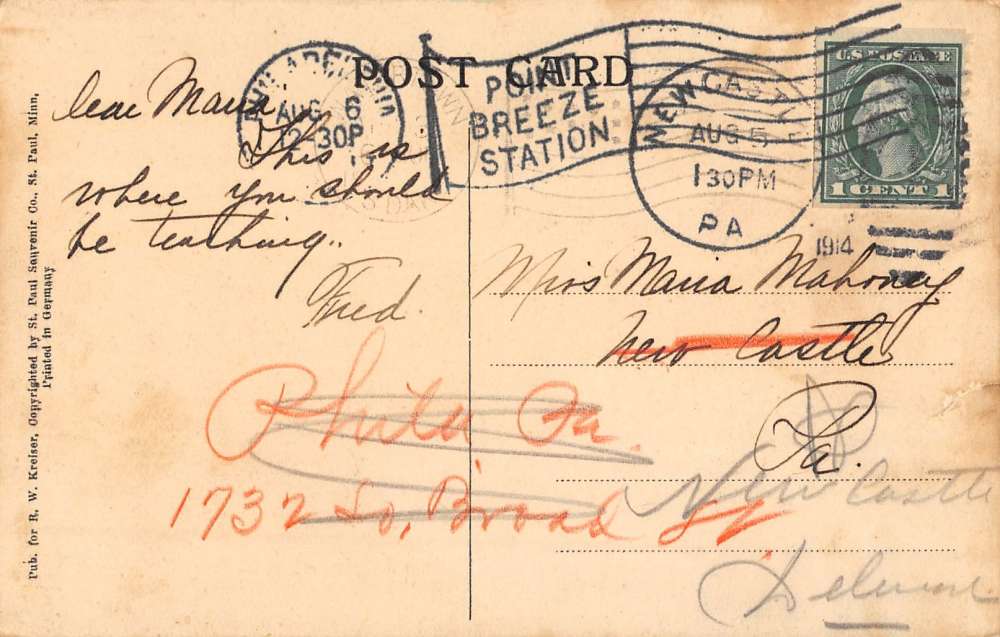 POST CARD
PHILADELPHIA
AUG 6
2-30P
POINT
BREEZE
STATION
NEW CASTLE
AUG 5
1 30PM
PA
1914
U.S. POSTAGE
1 CENT 1
Dear Maria
This is
where you should
be teaching.
Fred.
Miss Maria Mahoney
New Castle
Pa.
Phila Pa.
1732 So. Broad St
New Castle
Delware
Pub. for R. W. Kreiser, Copyrighted by St. Paul Souvenir Co., St. Paul, Minn.
Printed in Germany